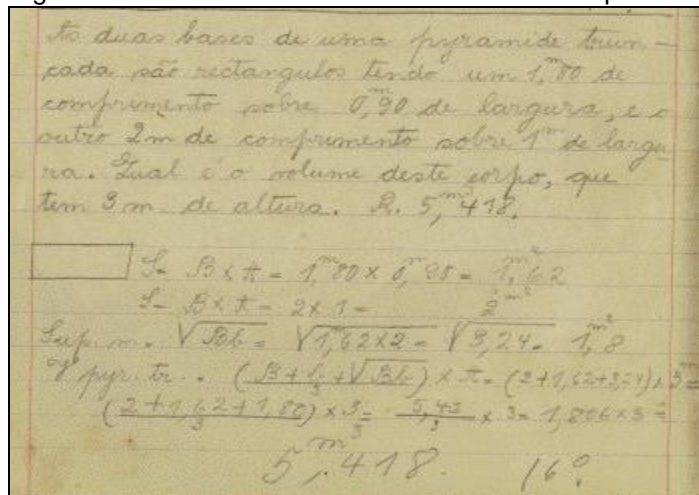 As duas bases de uma pyramide trun-
cada são rectangulos tendo um 1,ᵐ80 de
comprimento sobre 0,ᵐ90 de largura, e o
outro 2m de comprimento sobre 1ᵐ de largu
ra. Qual é o volume deste corpo, que
tem 3 m. de altura. R. 5,ᵐ³418.
S= B x A = 1,ᵐ80 x 0,ᵐ90 = 1,ᵐ²62
S= B x A = 2 x 1 = 2ᵐ²
Sup. m. = √Bb = √1,62x2 = √3,24 = 1,ᵐ²8
V pyr. tr. = (B + b + √Bb)/3 x A = (2+1,62+3,24) x 3ᵐ
(2 + 1,62 + 1,80)/3 x 3 = 5,42/3 x 3 = 1,806 x 3 =
5,ᵐ³418. 16º.